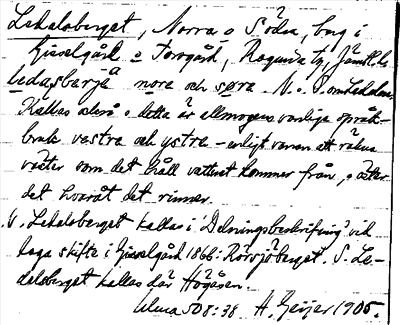 Ledalsberget, Norra o Södra, berg i
Gisselgård o Torsgård, Ragunda tg, Jämtl. l.
ledasbarjä nora och søra. N. o. S. om Ledalen.
Kallas också, o detta är allmogens vanliga språk-
bruk västra och ystra - enligt vanan att räkna
väster som det håll vattnet kommer från, o öster
det hvaråt det rinner.
N. Ledalsberget kallas i 'Delningsbeskrifning' vid
laga skifte i Gisselgård 1866: Rörsjöberget. S. Le-
dalsberget kallas där Högåsen.
Ulma 508:38. H. Geijer 1905.